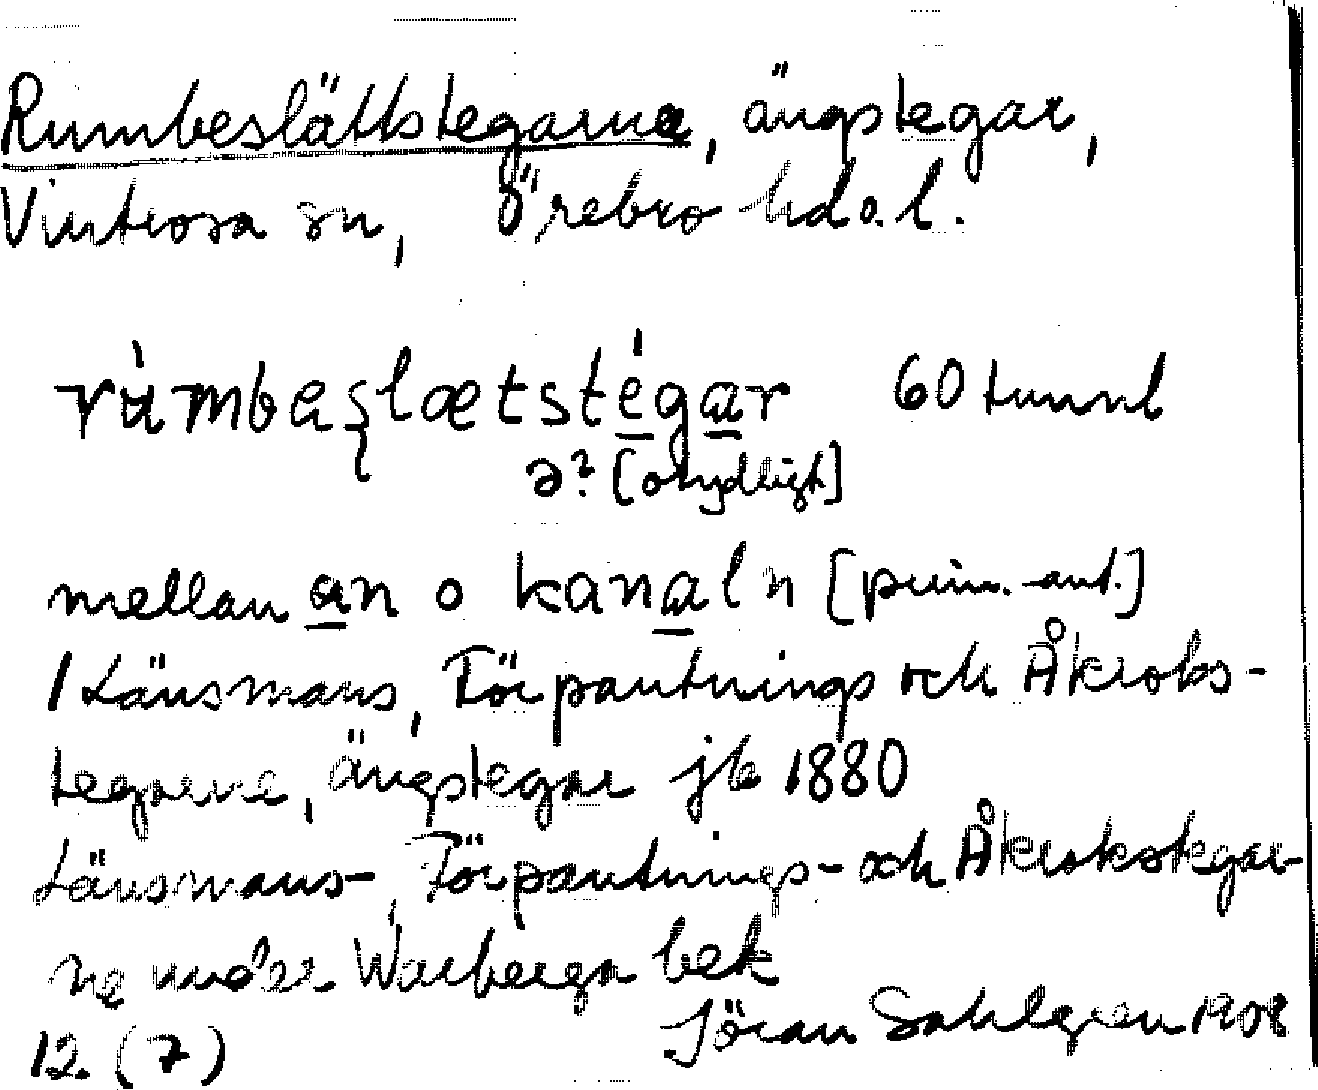 Rumbeslättstegarna, ängstegar,
Vintrosa sn, Örebro hd o. l.
rùmbeslætstégar 60 tunnl
ə? [otydligt]
mellan an o kanaln [prim.-ant.]
/ Länsmans, Förpantnings och Åkroks-
tegarne, ängstegar jb 1880
Länsmans-, Förpantnings- och Åkrokstegar-
ne under Warberga bek
12. (7) Jöran Sahlgren 1908